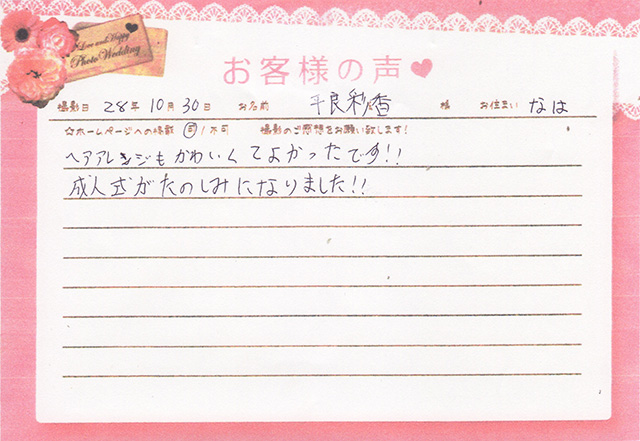 Love and Happy
Photo Wedding
お客様の声
撮影日 28年 10月 30日 お名前 平良彩香 様 お住まい なは
☆ホームページへの掲載 可 / 不可 撮影のご感想をお願い致します!
ヘアアレンジもかわいくてよかったです!!
成人式がたのしみになりました!!